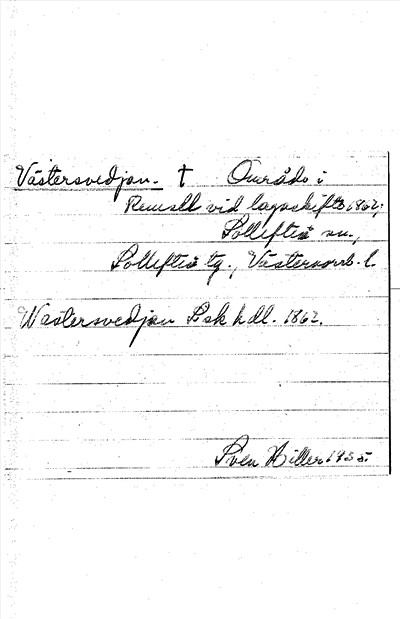 Västersvedjan. † Område i
Remsle vid lagaskifte 1862;
Sollefteå sn.,
Sollefteå tg., Västernorrl. l.
Wästersvedjan Lsk hdl. 1862.
Sven Hiller 1935.